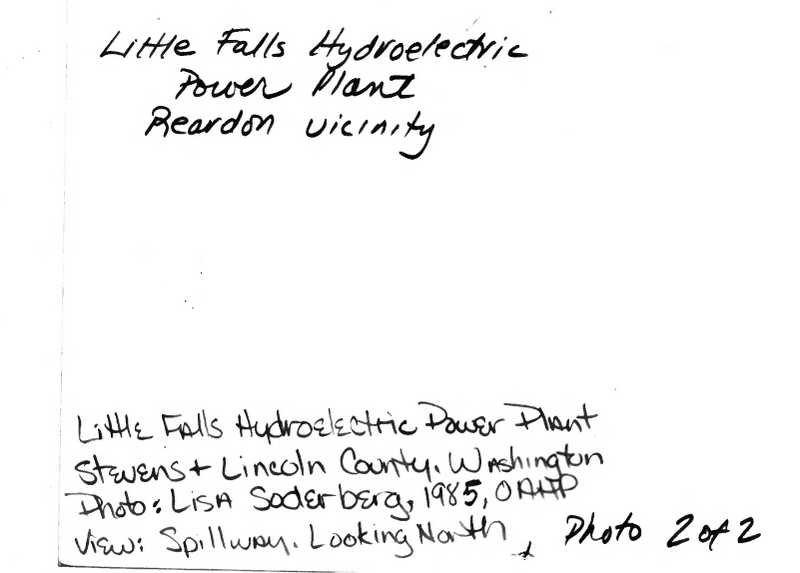 Little Falls Hydroelectric
Power Plant
Reardon vicinity
Little Falls Hydroelectric Power Plant
Stevens + Lincoln County, Washington
Photo: Lisa Soderberg, 1985, OAHP
View: Spillway. Looking North
Photo 2 of 2